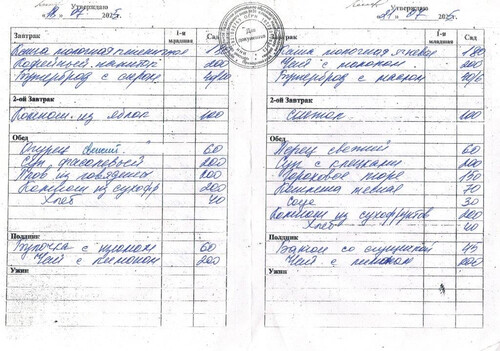 Утверждаю
2025г.
Завтрак
1-я младшая
Сад
Каша молочная пшеничная 180
Кофейный напиток 200
Бутерброд с сыром
2-ой Завтрак
Компот из яблок 100
Обед
Огурец свежий 60
Суп фасолевый 200
Плов из говядины 200
Компот из сухофр 200
Хлеб 40
Полдник
Булочка с изюмом 60
Чай с лимоном 200
Ужин
Утверждаю
2025г.
Завтрак
1-я младшая
Сад
Каша молочная ячневая 180
Чай с молоком 200
Бутерброд с маслом
2-ой Завтрак
100
Обед
Перец свежий 60
Суп с клецками 200
Гороховое пюре 150
Котлета 70
Соус 30
Компот из сухофруктов 200
Хлеб 40
Полдник
Батон со сгущенкой 45
Чай с лимоном 200
Ужин